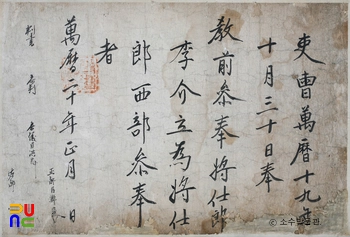 吏曹萬曆十九年
十月三十日奉
教前參奉將仕郎
李介立為將仕
郎西部參奉
者
萬曆二十年正月 日
判書 參判 參議 正郎
ⓒ 소수박물관